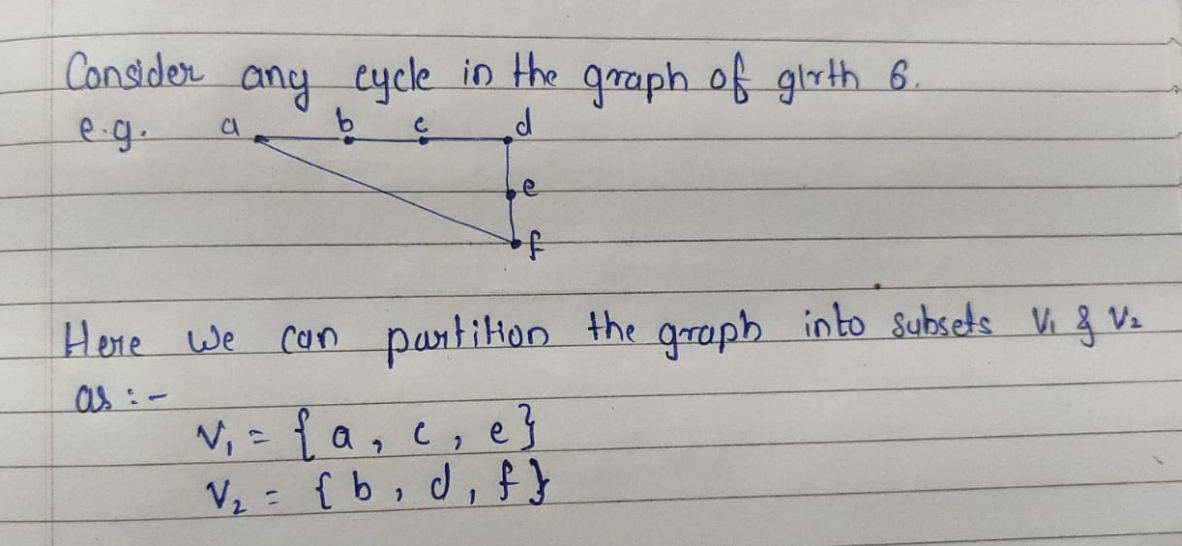 Consider any cycle in the graph of girth 6.
e.g. a b c d
e
f
Here we can partition the graph into subsets V₁ & V₂
as :-
V₁ = {a, c, e}
V₂ = {b, d, f}